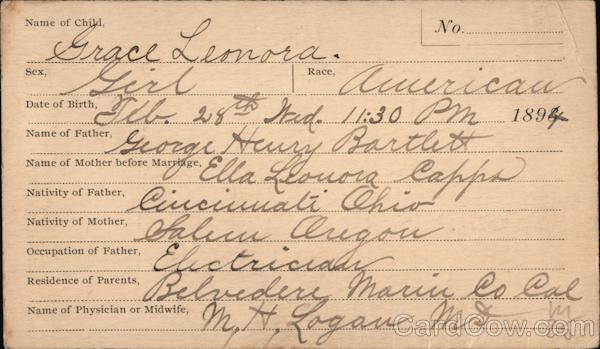 Name of Child,
No.
Grace Leonora.
Sex, Girl Race, American
Date of Birth, Feb. 28th Wed. 11:30 PM 1894
Name of Father, George Henry Bartlett
Name of Mother before Marriage, Ella Leonora Capps
Nativity of Father, Cincinnati Ohio
Nativity of Mother, Salem Oregon
Occupation of Father, Electrician
Residence of Parents, Belvedere Marin Co Cal
Name of Physician or Midwife, M, H, Logan MD
CardCow.com